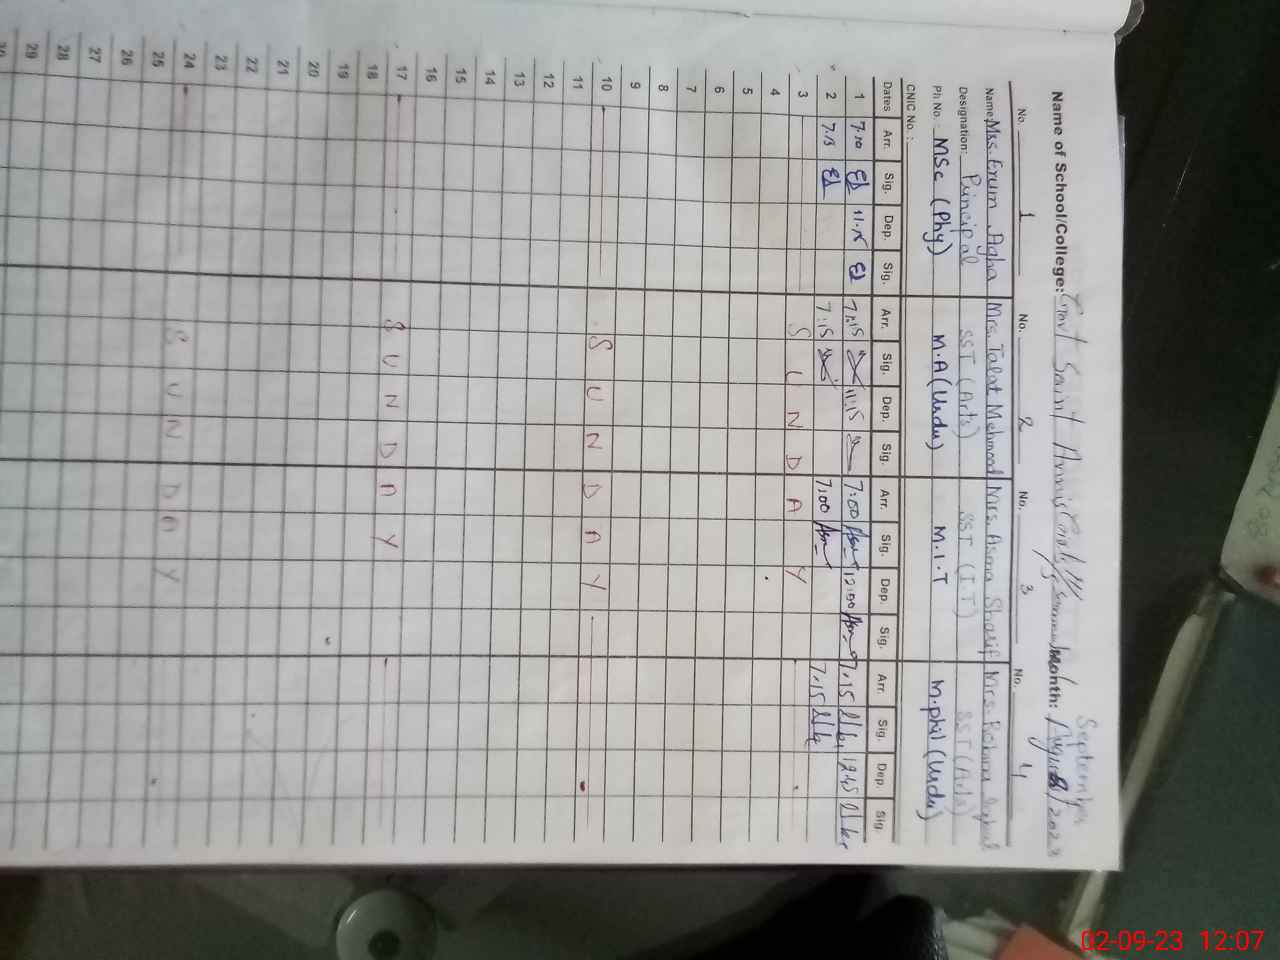 September
Name of School/College: Govt Saint Month: August/2023
No. 1 No. 2 No. 3 No. 4
Name: Mrs. Erum Agha Mrs. Talat Mehmood Mrs. Asma Sharif Mrs. Robina
Designation: Principal SST (Arts) SST (IT) SST (Arts)
Ph No. MSc (Phy) M.A (Urdu) M.I.T M.phil (Urdu)
CNIC No. :
Dates Arr. Sig. Dep. Sig. Arr. Sig. Dep. Sig. Arr. Sig. Dep. Sig. Arr. Sig. Dep. Sig.
1 7:10 11.15 7:15 11:15 7:00 12:00 7.15 12.45
2 7.15 7:15 7:00 7.15
3 S U N D A Y
4
5
6
7
8
9
10 S U N D A Y
11
12
13
14
15
16
17 S U N D A Y
18
19
20
21
22
23
24 S U N D A Y
25
26
27
28
29
30
02-09-23 12:07